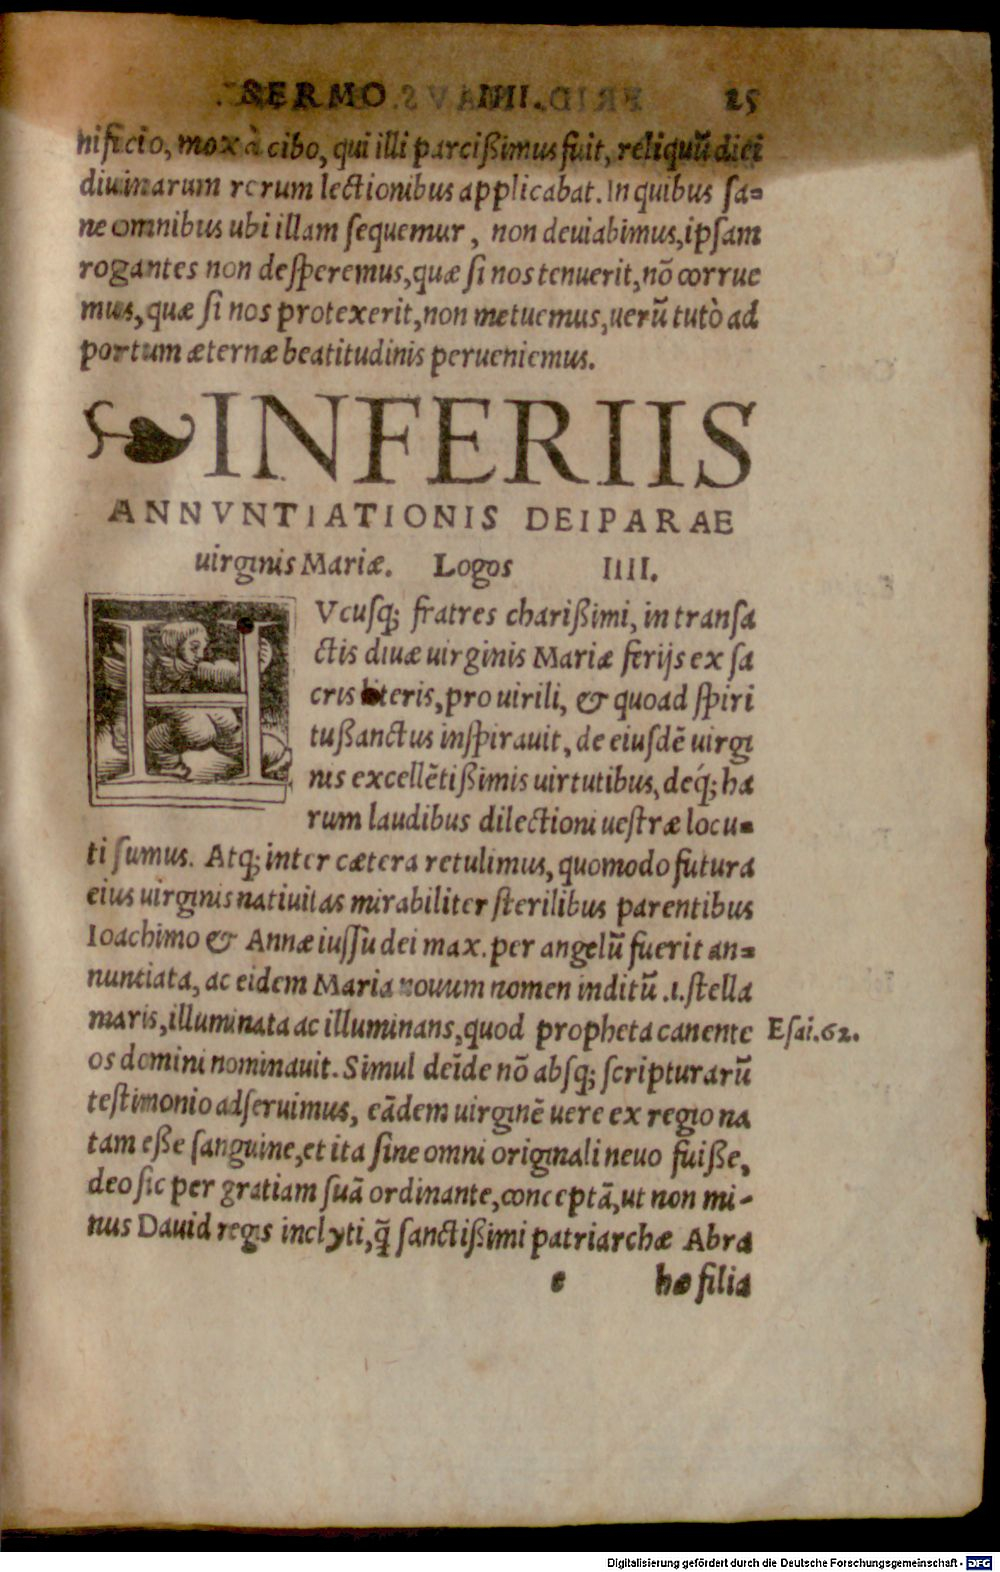 SERMO IIII. 25
nificio, mox à cibo, qui illi parcißimus fuit, reliquũ diei
diuinarum rerum lectionibus applicabat. In quibus ſa=
ne omnibus ubi illam ſequemur, non deuiabimus, ipſam
rogantes non deſperemus, quæ ſi nos tenuerit, nõ corrue
mus, quæ ſi nos protexerit, non metuemus, uerũ tutò ad
portum æternæ beatitudinis perueniemus.
❧ IN FERIIS
ANNVNTIATIONIS DEIPARAE
uirginis Mariæ. Logos IIII.
HVcuſq; fratres charißimi, in tranſa
ctis diuæ uirginis Mariæ ferijs ex ſa
cris literis, pro uirili, & quoad ſpiri
tußanctus inſpirauit, de eiuſdẽ uirgi
nis excellẽtißimis uirtutibus, deq́; ha
rum laudibus dilectioni ueſtræ locu=
ti ſumus. Atq; inter cætera retulimus, quomodo futura
eius uirginis natiuitas mirabiliter ſterilibus parentibus
Ioachimo & Annæ iuſſu dei max. per angelũ fuerit an=
nuntiata, ac eidem Maria nouum nomen inditũ .i. ſtella
maris, illuminata ac illuminans, quod propheta canente Eſai. 62.
os domini nominauit. Simul deĩde nõ abſq; ſcripturarũ
teſtimonio adſeruimus, eãdem uirginẽ uere ex regio na
tam eße ſanguine, et ita ſine omni originali neuo fuiße,
deo ſic per gratiam ſuã ordinante, conceptã, ut non mi-
nus Dauid regis inclyti, q̃ ſanctißimi patriarchæ Abra
e hæ filia
Digitalisierung gefördert durch die Deutsche Forschungsgemeinschaft - DFG